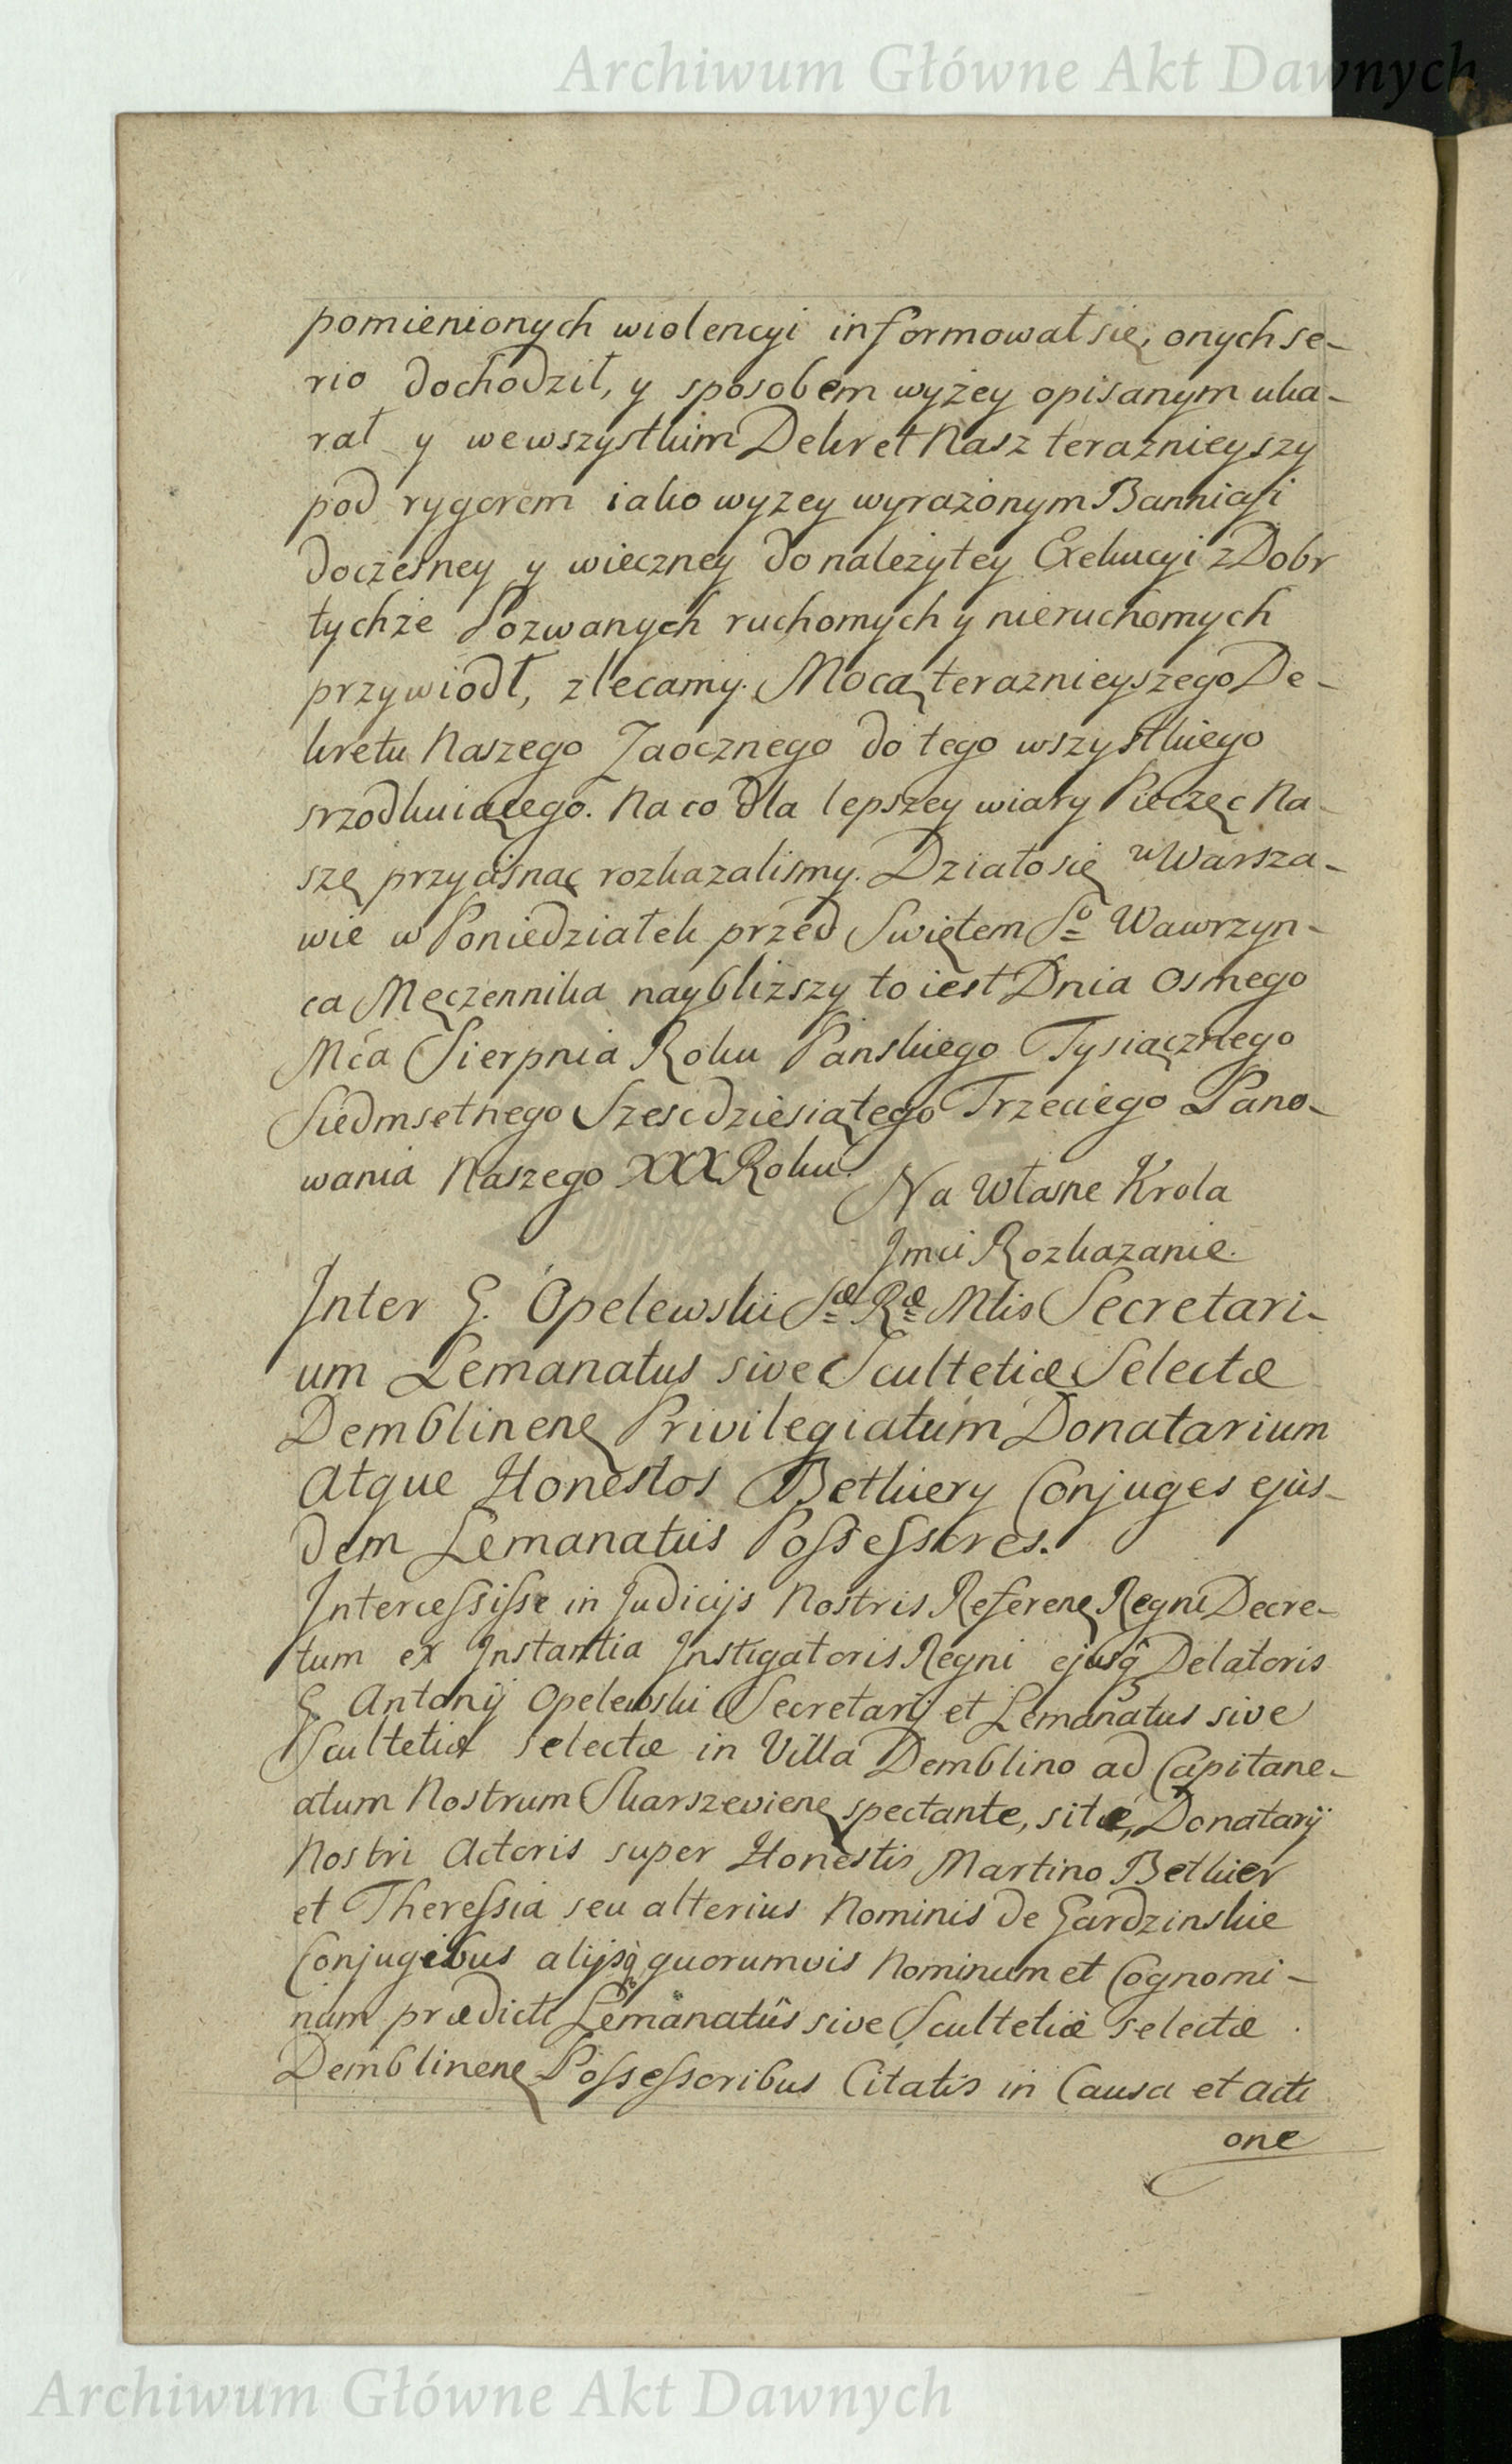 Archiwum Główne Akt Dawnych
pomienionych wiolencyi informował się, onych se-
rio dochodził, y sposobem wyżey opisanym uka-
rał y wewszystkim Dekret Nasz teraznieyszy
pod rygorem iako wyzey wyrażonym Bannicyi
doczesney y wieczney do należytey Exekucyi z Dobr
tychże Pozwanych ruchomych y nieruchomych
przywiodł, zlecamy. Mocą teraznieyszego De-
kretu Naszego Zaocznego do tego wszystkiego
srzodkuiącego. Na co dla lepszey wiary Pieczęc Na-
szę przycisnąc rozkazalismy. Działo się w Warsza-
wie w Poniedziałek przed Swiętem So Wawrzyn-
ca Męczennika nayblizszy to iest Dnia Osmego
Mca Sierpnia Roku Panskiego Tysiącznego
Siedmsetnego Szescdziesiątego Trzeciego Pano-
wania Naszego XXX Roku.
Na Własne Krola
Jmci Rozkazanie.
Inter G. Opelewski Sæ Ræ Mtis Secretari-
um Lemanatus sive Scultetiæ Selectæ
Demblinenę Privilegiatum Donatarium
Atque Honestos Betkiery Conjuges ejus-
dem Lemanatus Possessores.
Intercessisse in Judicijs Nostris Referenę Regni Decre-
tum ex Instantia Instigatoris Regni ejusq̃ Delatoris
G. Antonij Opelewski Secretarij et Lemanatus sive
Scultetiæ selectæ in Villa Demblino ad Capitane-
atum Nostrum Skarszevienę spectante, sitæ, Donatarij
Nostri Actoris super Honestis Martino Betkier
et Theressia seu alterius Nominis de Gardzinskie
Conjugibus alijsq̃ quorumvis Nominum et Cognomi-
num prædicti Lemanatûs sive Scultetiæ selectæ
Demblinenę Possessoribus Citatis in Causa et acti
one
Archiwum Główne Akt Dawnych